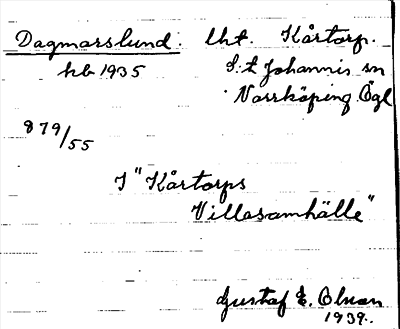 Dagmarslund. lht. Kårtorp.
hb 1935 S:t Johannis sn
Norrköping Ögl
879/55
I "Kårtorps
Villasamhälle"
Gustaf E. Olson
1939.